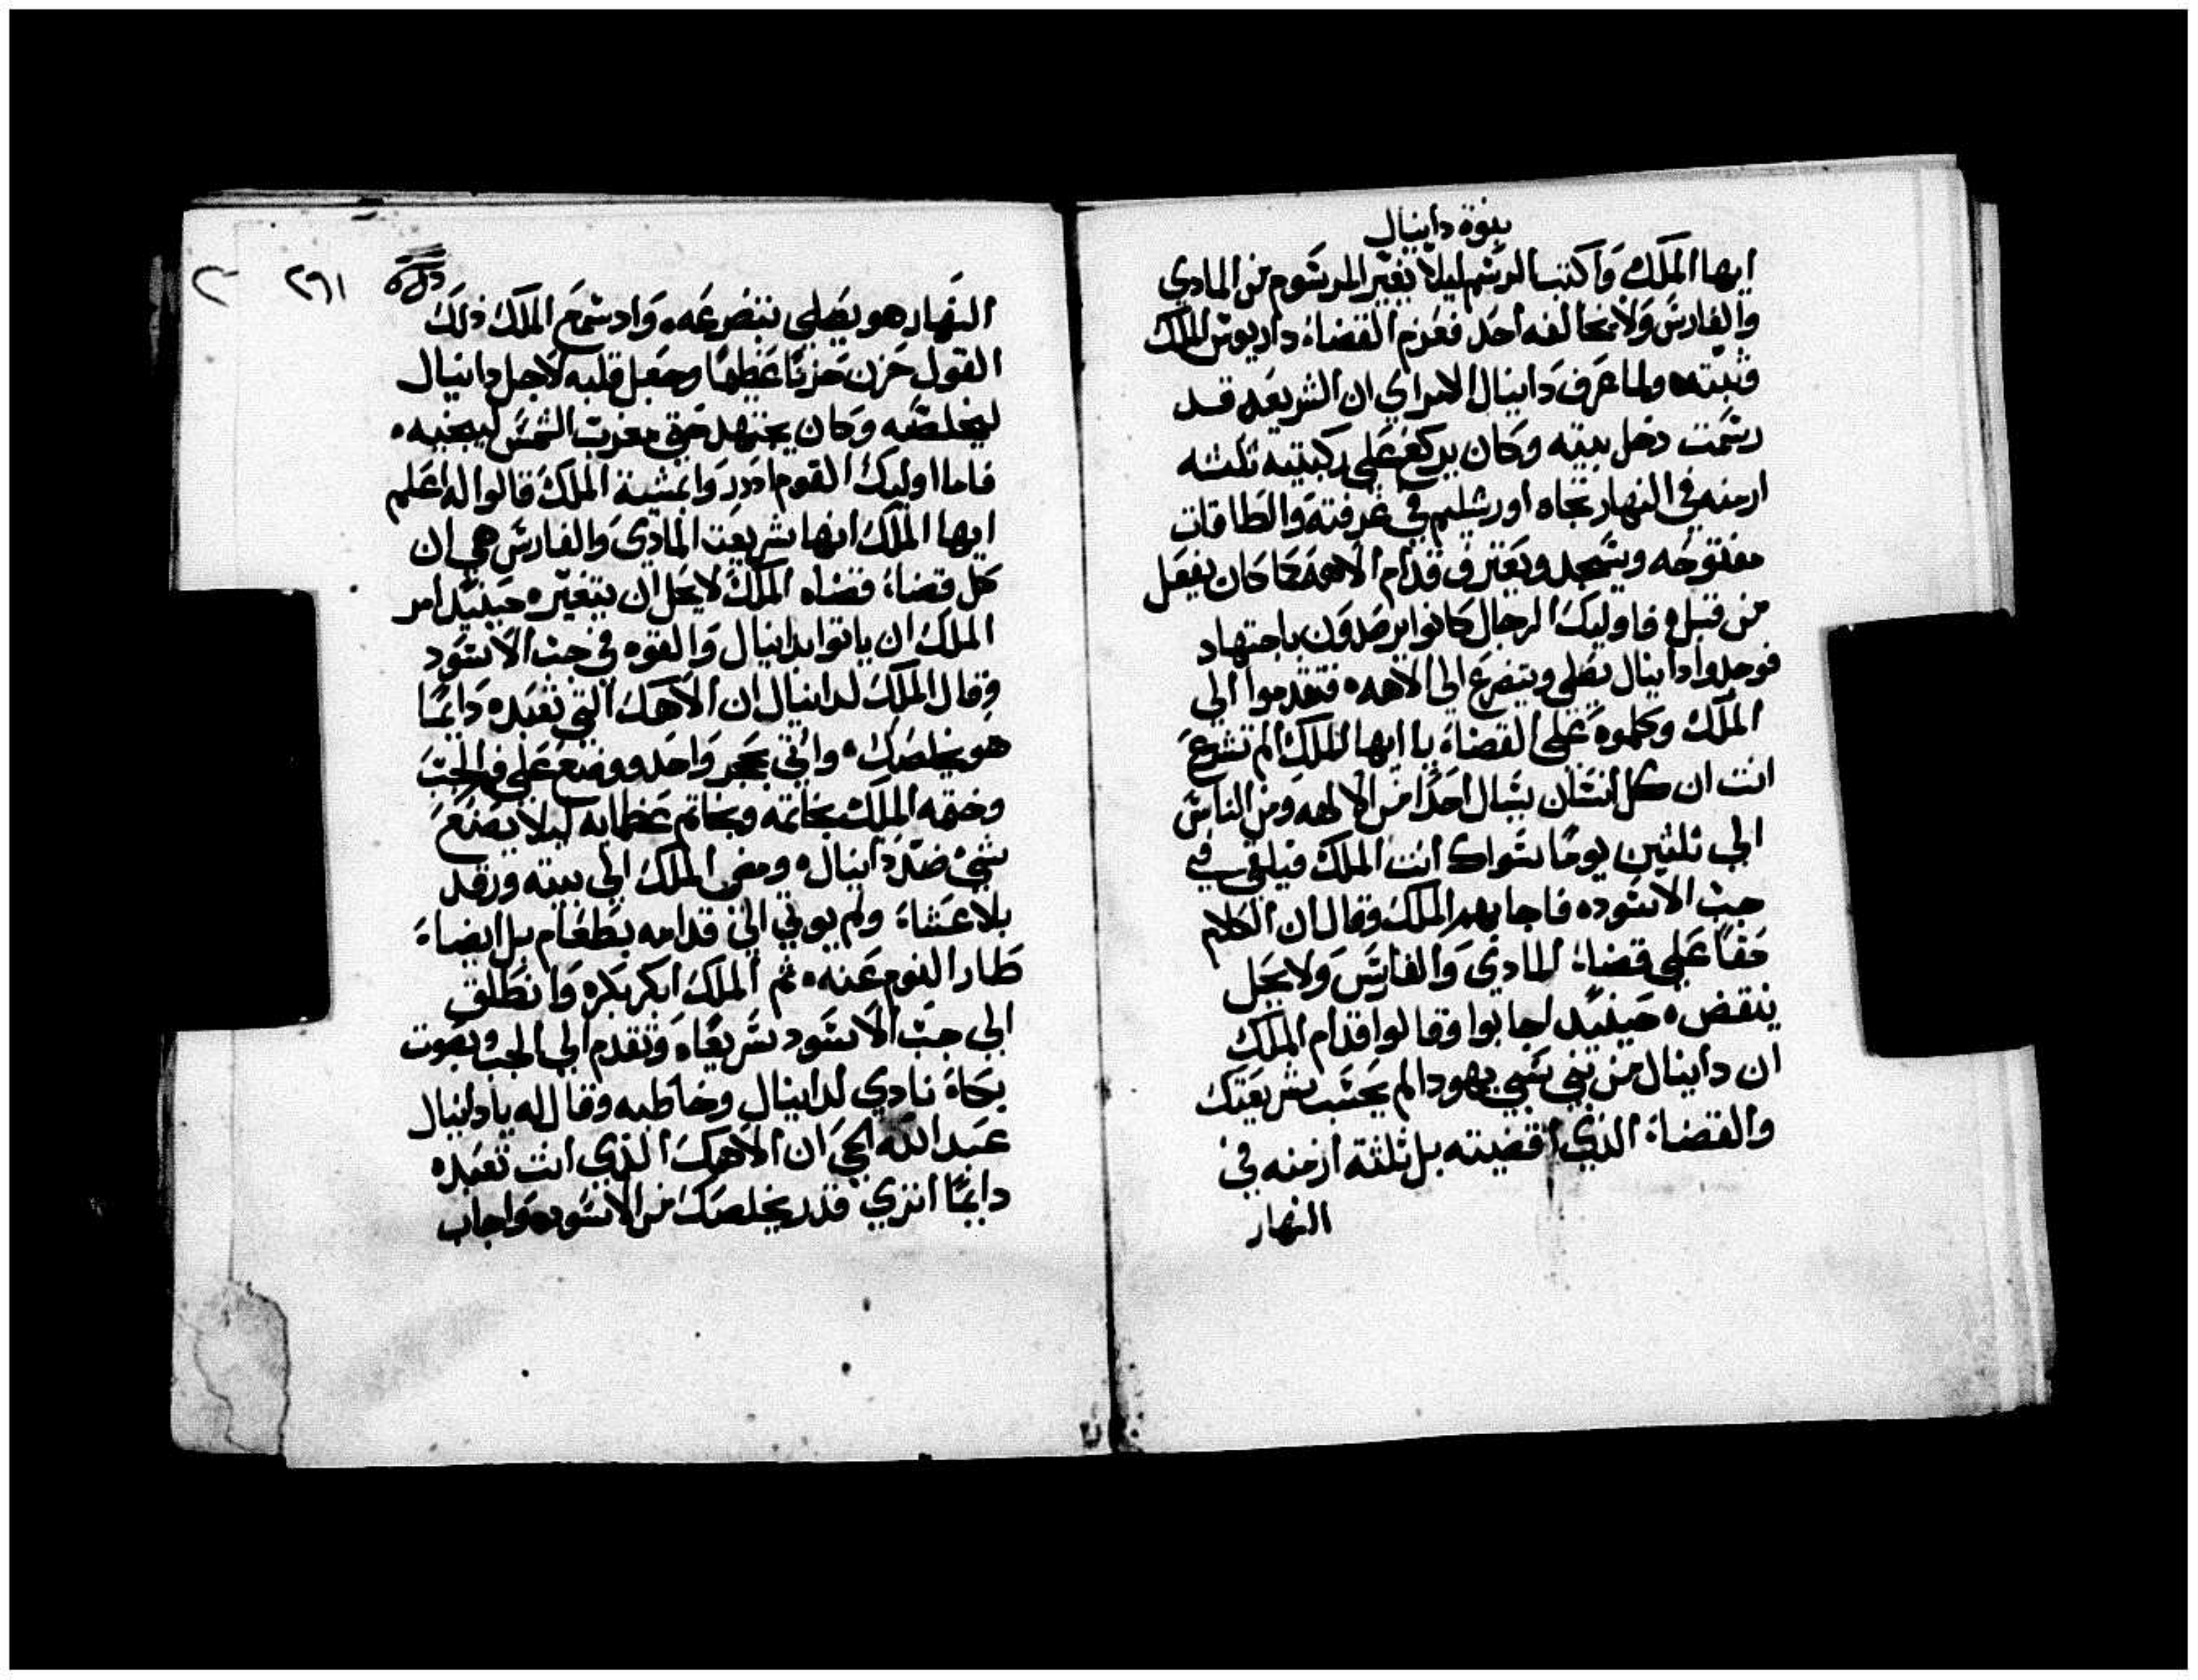 بنوة دانيال
ايها الملك وَاكتب الرسم ليلا يغيّر المرسوم من المادي
والفارس وَلا يخالفه احَد فعزم القضاة داريوس الملك
وثبته ولما عَرف دَانيال الامراي ان الشريعَه قد
رسَمت دخل بيته وكان يركع عَلى ركبتيه ثلثه
ازمنه في النهار تجاه اورشليم في غرفته وَالطاقات
مفتوحه ويسَجد ويَعترف قدام الاهه كما كان يفعَل
من قبل ه فاوليك الرجال كانوا يرصدون باجتهاد
فوجدوا دانيال يصَلي ويتضرع الى الاهه ه فتقدموا الى
الملك وكلموه عَلى القضاة يا ايها الملك الم تشرع
انت ان كل انسَان يسَال احَدًا من الالهه ومن الناس
الى ثلثين يومًا سَواك انت الملك فيلقى في
جب الاسَود ه فاجابهم الملك وقال ان الكلام
حَقًا عَلى قضاة المادى وَالفارسَ وَلا يحَل
ينقض ه حَينيد اجابوا وقالوا قدام الملك
ان دانيال من بني سَبي يهودا لم يحَتسَب شريعَتك
والقضاة الذي اقضيته بل ثلثة ازمنه في
النهار
٢٦١
النهَار هو يصَلي بتضرعَه ه وَاد سَمعَ الملك ذلك
القول حَزن حَزنًا عَظيمًا وجعَل قلبه لاجل دانيال
ليخلصَه وكان يجتهد حَتى مغرب الشمسَ لينجيه ه
فاما اوليك القوم ادرروا بمشية الملك قالوا له اعَلم
ايها الملك انها شريعَت المادى وَالفارسَ هي ان
كل قضاة قضاه الملك لا يحَل ان يتغيّر ه حَينيد امر
الملك ان ياتوا بدانيال وَالقوه في جب الاسَود
وقال الملك لدانيال ان الاهك التي تعَبده دَايمًا
هو يخلصَك ه واتى بحَجر وَاحَد ووضعَ عَلى فم الجبَ
وختمه الملك بخاتمه وبخاتم عَظمايه ليلا يصَنعَ
شيَ ضدّ دانيال ه ومضى الملك الى بيته ورقد
بلا عَشاة ولم يوتي الى قدامه بطعَام بل ايضاة
طار النوم عَنه ه ثم الملك ابكر بكره وَانطلق
الى جبّ الاسَود سَريعًا ه وَتقدم الى الجب وبصَوت
بكاة نادي لدانيال وخاطبه وقال له يا دانيال
عَبد الله الحَيَ ان الاهك الذي انت تعَبده
دايمًا اترى قدر يخلصَك من الاسَود ه وَاجاب